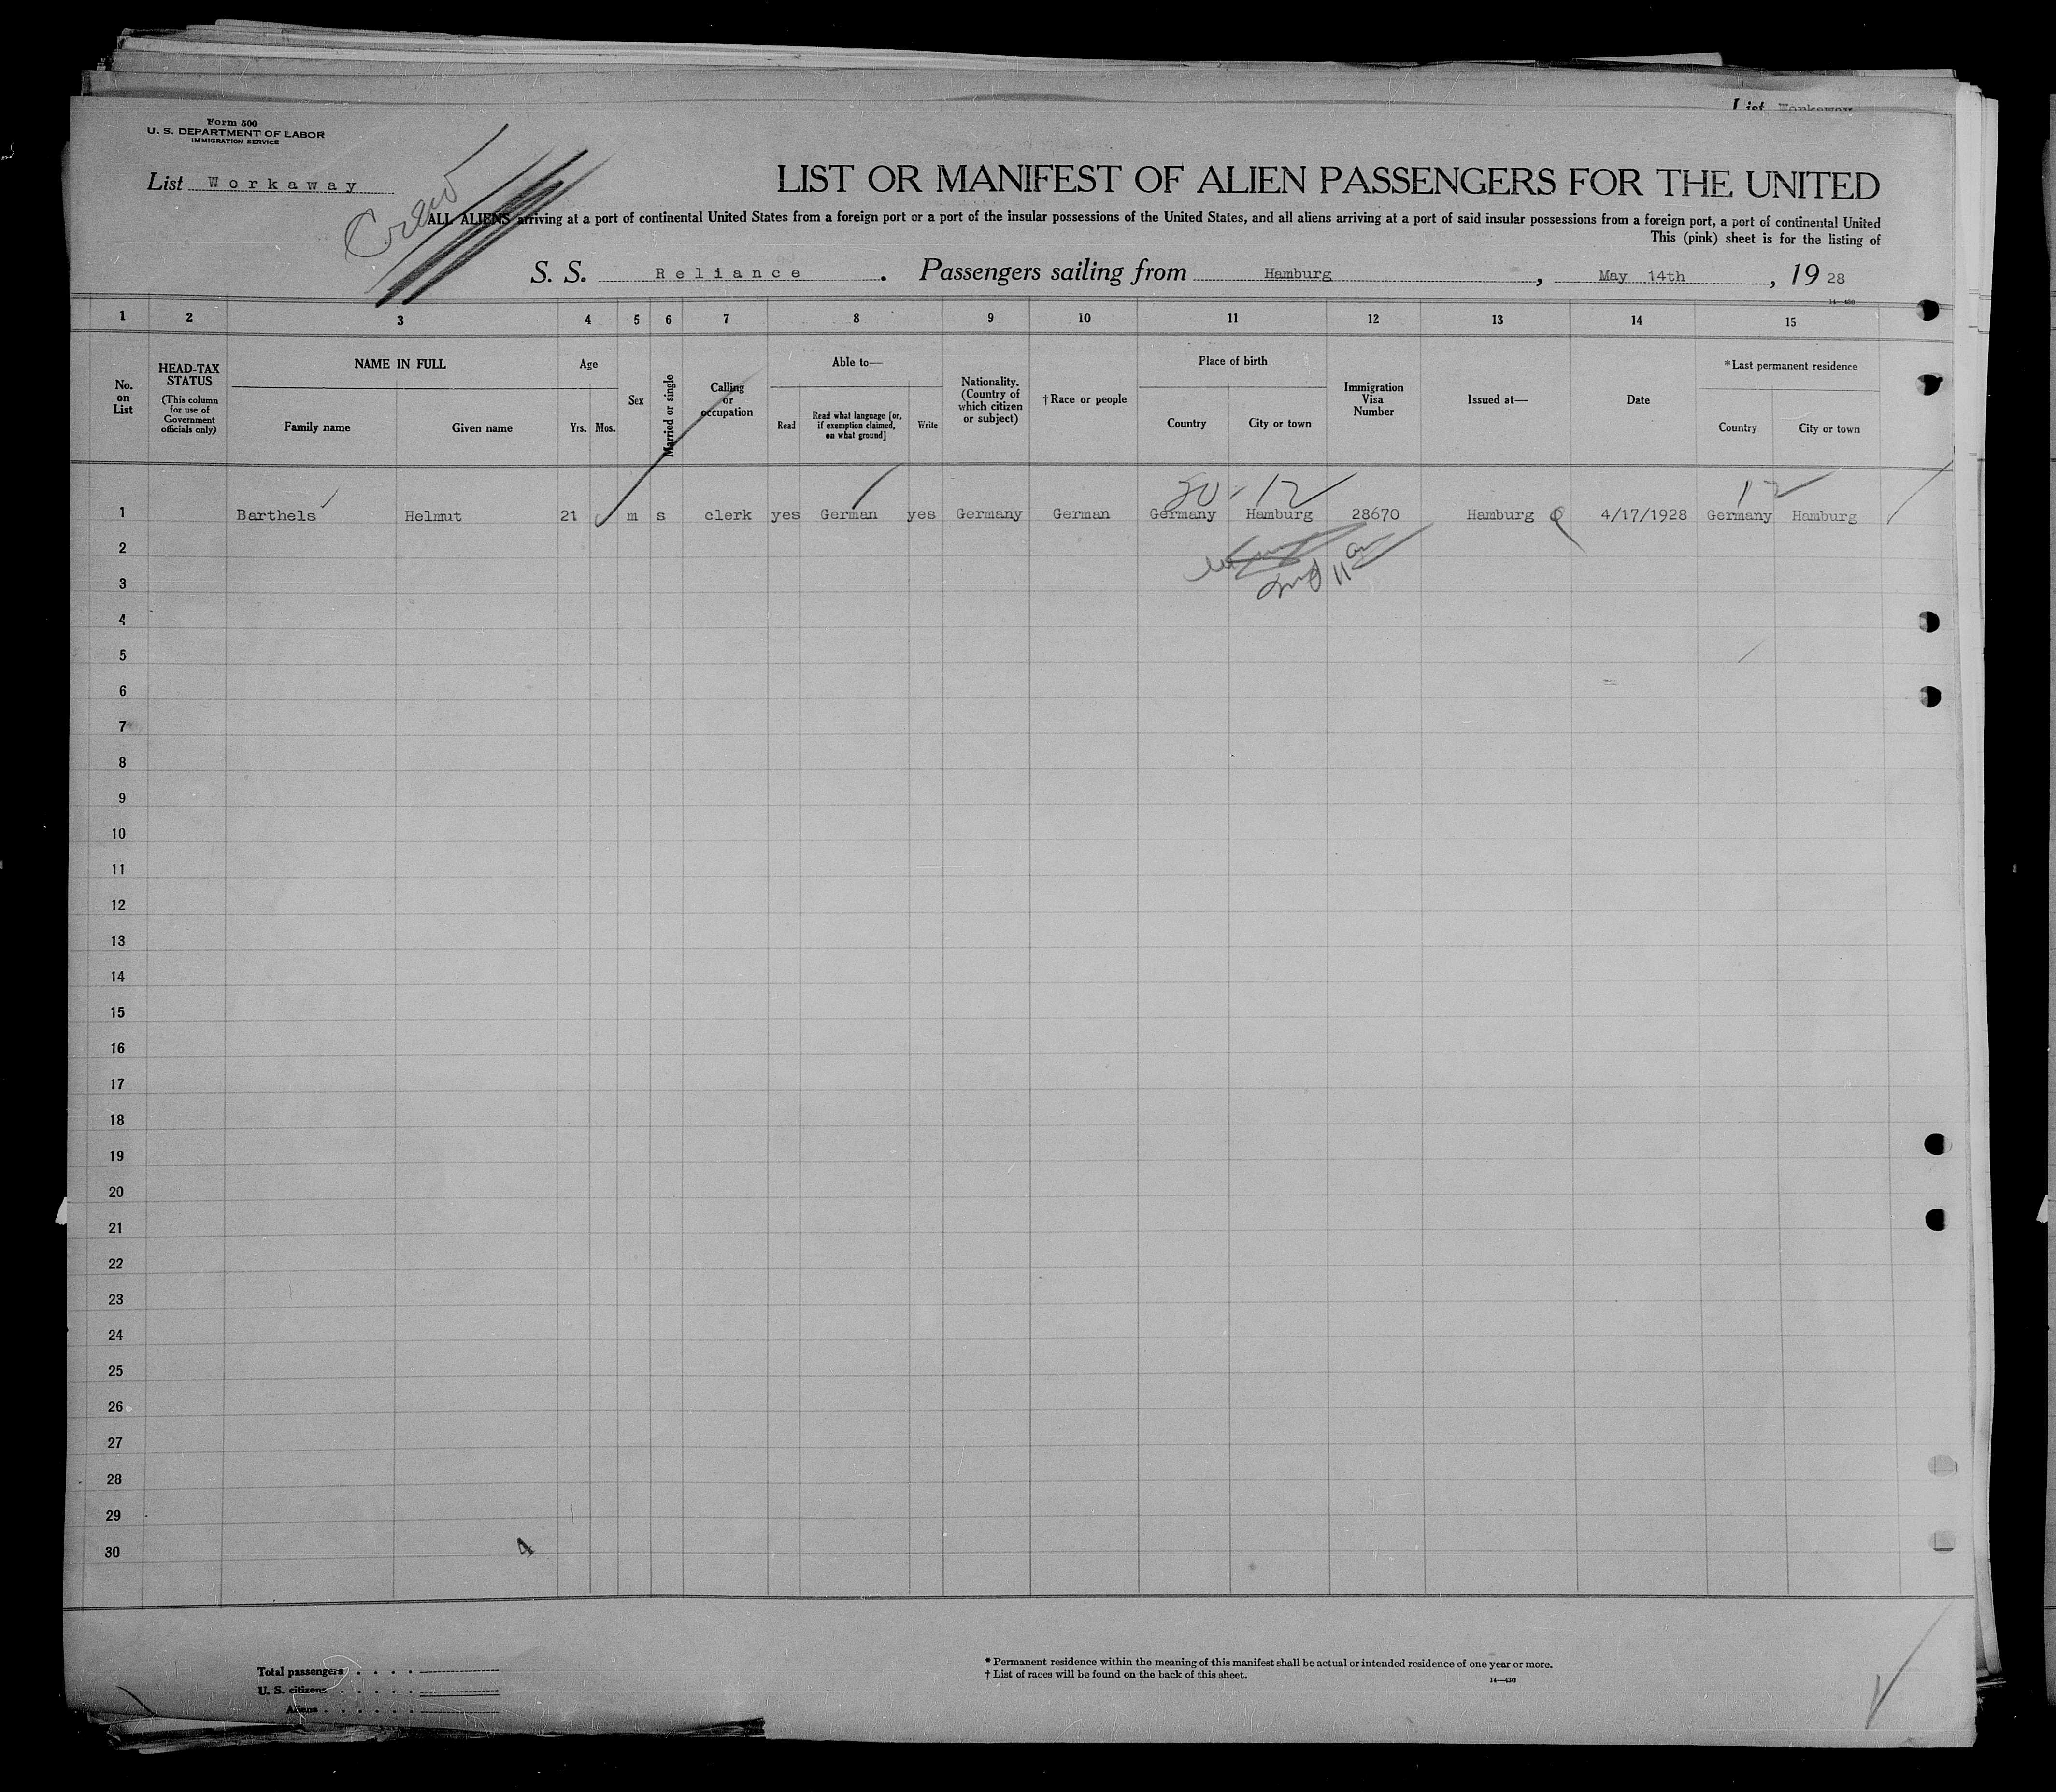 List Workaway
Form 500
U. S. DEPARTMENT OF LABOR
IMMIGRATION SERVICE
List Workaway
Crew
LIST OR MANIFEST OF ALIEN PASSENGERS FOR THE UNITED
ALL ALIENS arriving at a port of continental United States from a foreign port or a port of the insular possessions of the United States, and all aliens arriving at a port of said insular possessions from a foreign port, a port of continental United
This (pink) sheet is for the listing of
S. S. Reliance. Passengers sailing from Hamburg, May 14th, 19 28
14—430
1 2 3 4 5 6 7 8 9 10 11 12 13 14 15
No. on List
HEAD-TAX STATUS
(This column for use of Government officials only)
NAME IN FULL
Family name Given name
Age
Yrs. Mos.
Sex
Married or single
Calling or occupation
Able to—
Read Read what language [or, if exemption claimed, on what ground] Write
Nationality. (Country of which citizen or subject)
†Race or people
Place of birth
Country City or town
Immigration Visa Number
Issued at—
Date
*Last permanent residence
Country City or town
20-12 12
1 Barthels Helmut 21 m s clerk yes German yes Germany German Germany Hamburg 28670 Hamburg 4/17/1928 Germany Hamburg
2
3
4
5
6
7
8
9
10
11
12
13
14
15
16
17
18
19
20
21
22
23
24
25
26
27
28
29
30
4
Total passengers
U. S. citizens
Aliens
* Permanent residence within the meaning of this manifest shall be actual or intended residence of one year or more.
† List of races will be found on the back of this sheet.
14—430